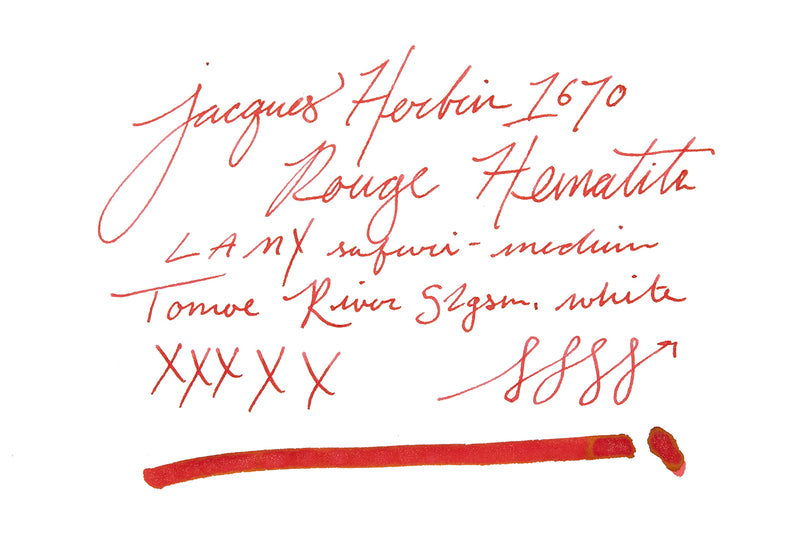 Jacques Herbin 1670
Rouge Hematite
LAMY safari - medium
Tomoe River 52gsm. white
X X X X X